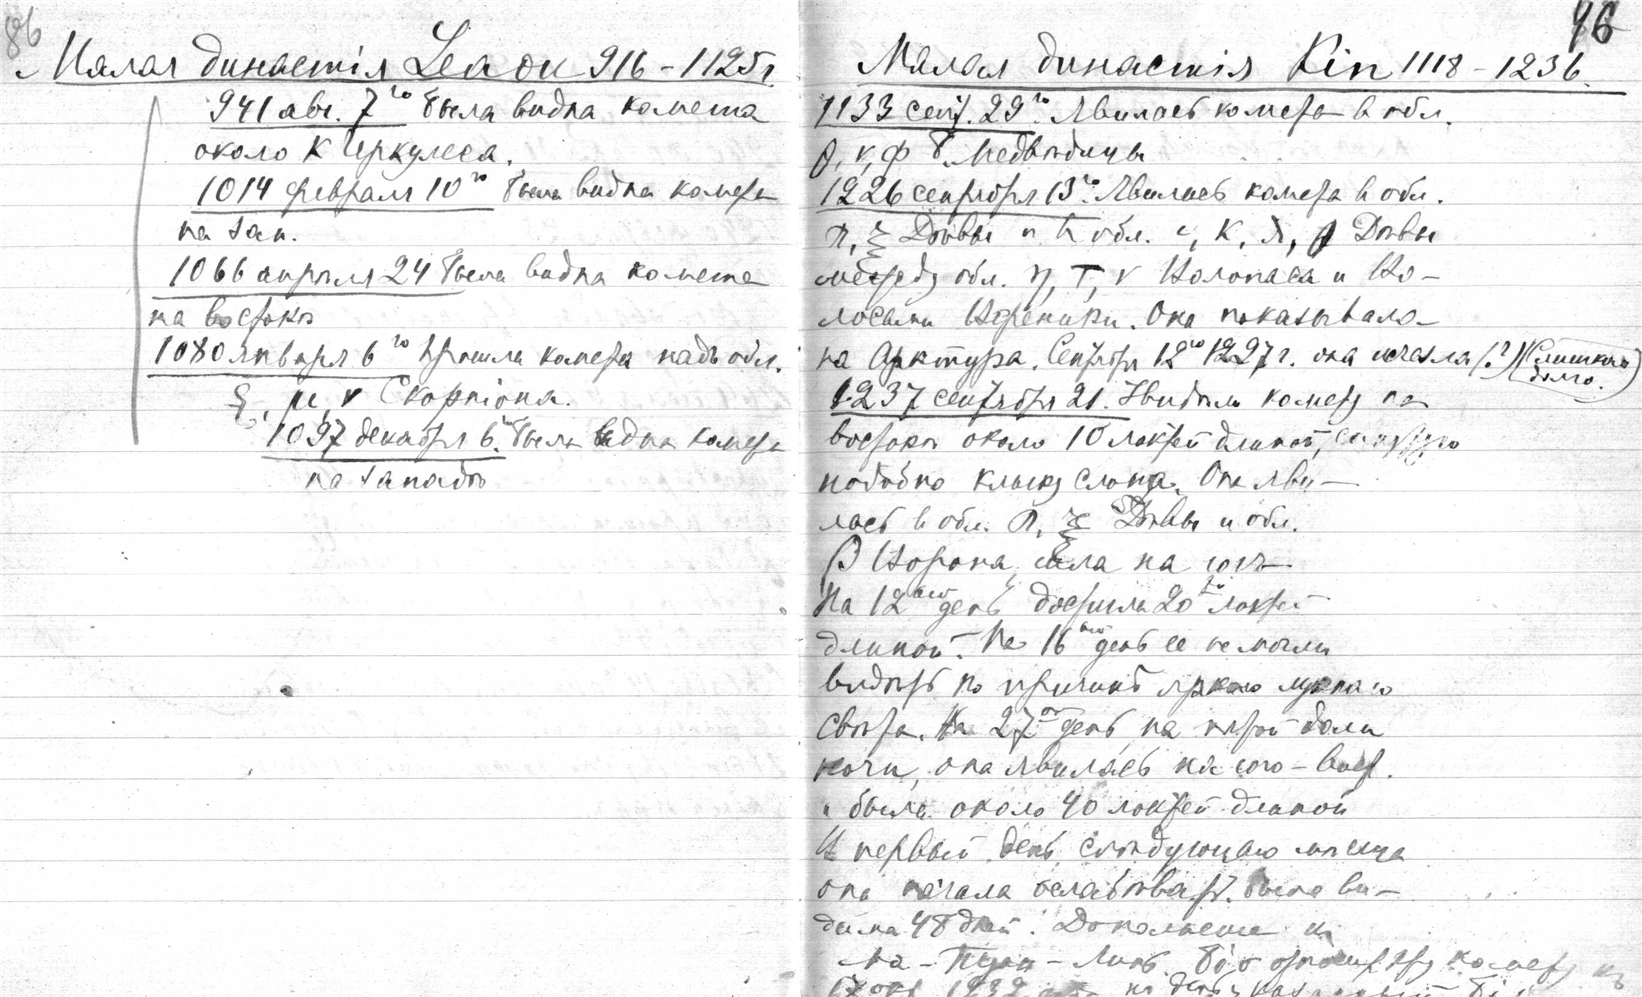 86
Малая династія Leaou 916 - 1125 г
941 авг. 7го была видна комета
около К Геркулеса.
1014 февраля 10го была видна комета
на зап.
1066 апрѣля 24 была видна комета
на востокѣ
1080 января 6го прошла комета надъ обл.
ξ, μ, ν Скорпіона.
1097 декабря 6го была видна комета
на западѣ
96
Малая династія Kin 1118 - 1236
1133 сент. 29го явилась комета в обл.
θ, ν, φ Б. Медвѣдицы
1226 сентября 13го явилась комета в обл.
π, ξ Дѣвы и в обл. ι, κ, λ, Дѣвы
между обл. η, τ, ν Волопаса и Во-
лосами Вереники. Она показывала
на Арктура. Сентября 12го 1227 г. она исчезла (?) (Слишком
долго.)
1237 сентября 21. Увидали комету на
востокѣ около 10 локтей длиной,
подобно клыку слона. Она яви-
лась в обл. π, ξ Дѣвы и обл.
β Ворона, шла на югъ
На 12ый день достигла 20ти локтей
длиной. На 16ый день ее не могли
видѣть по причинѣ яркаго луннаго
свѣта. На 27ой день, на пятой доли
ночи, она явилась на юго-вост.
и была около 40 локтей длиной
В первый день слѣдующаго мѣсяца
она начала ослабѣвать. Была ви-
дима 48 дней. Дополненіе из
Ма-Туан-Линь комету
1232